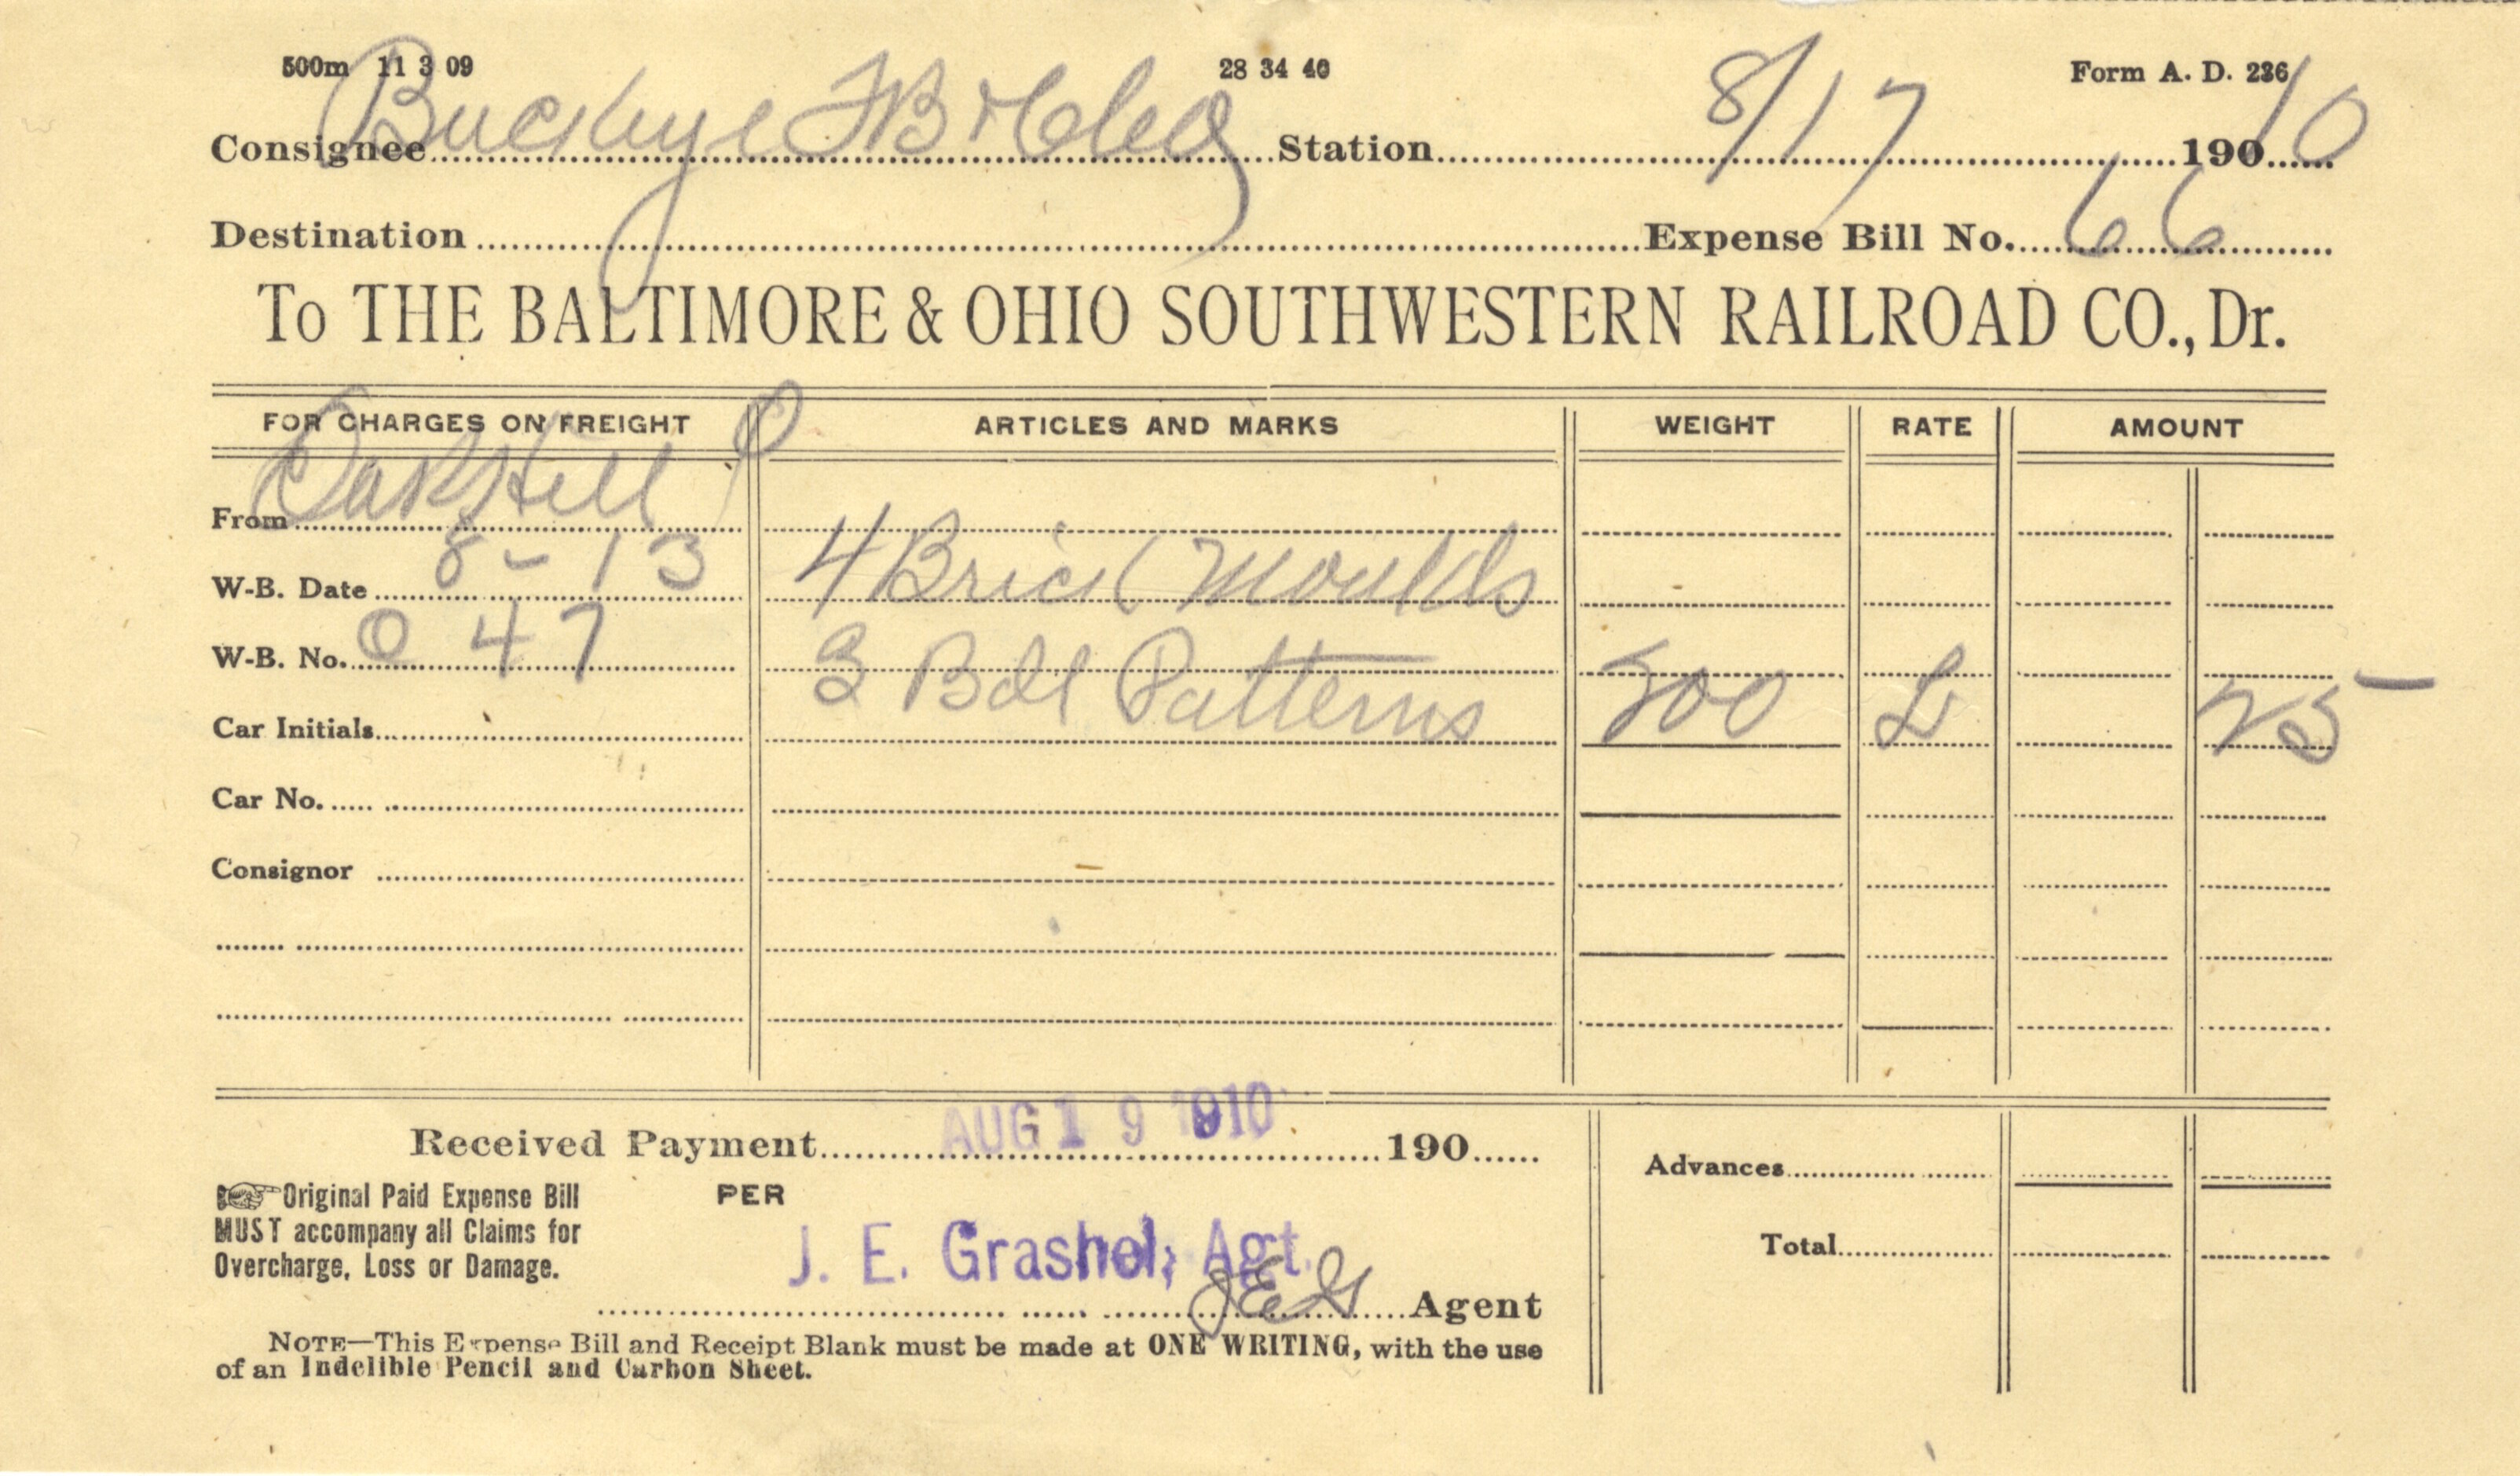 500m 11 3 09 28 34 40 Form A. D. 236
Consignee Buckeye F B & C Co Station 8/17 190 10
Destination Expense Bill No. 66
To THE BALTIMORE & OHIO SOUTHWESTERN RAILROAD CO., Dr.
FOR CHARGES ON FREIGHT ARTICLES AND MARKS WEIGHT RATE AMOUNT
From Oak Hill O
W-B. Date 8-13 4 Brick Moulds
W-B. No. 0 47 3 Bdl Patterns 300 L 25
Car Initials
Car No.
Consignor
Received Payment AUG 19 1910 190
Advances
Original Paid Expense Bill PER
MUST accompany all Claims for
Overcharge, Loss or Damage.
J. E. Grashel, Agt.
Total
JEG Agent
NOTE—This Expense Bill and Receipt Blank must be made at ONE WRITING, with the use
of an Indelible Pencil and Carbon Sheet.